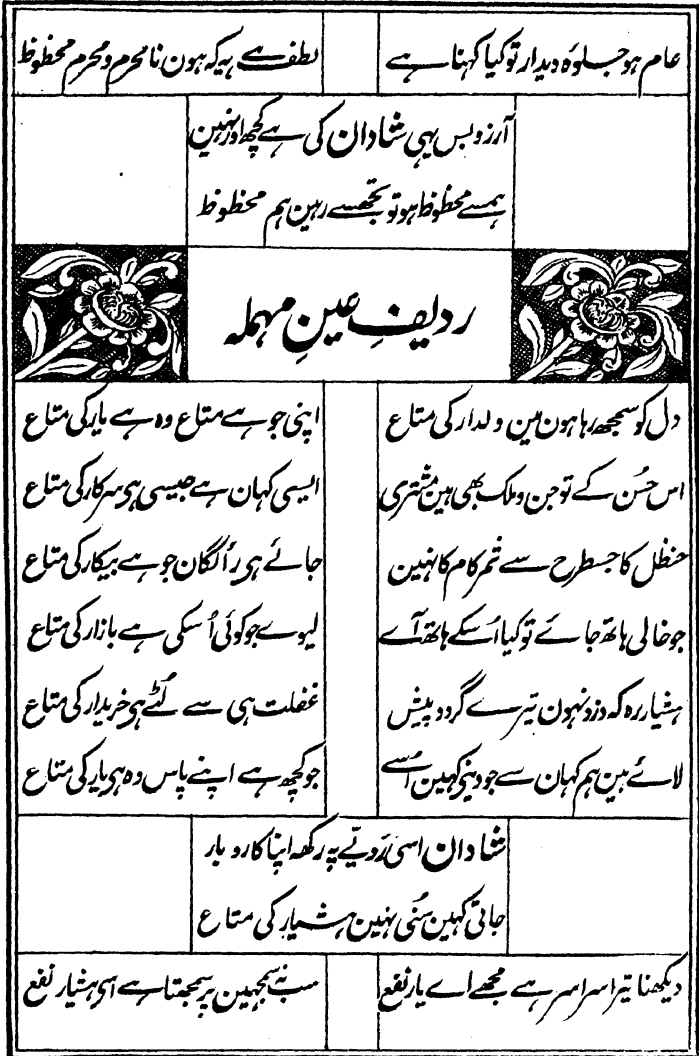 عام ہو جلوہ دیدار تو کیا کہنا ہے
لطف ہے یہ کہ ہون نامحرم و محرم محظوظ
آرزو بس یہی شادان کی ہے کچھ اور نہین
ہمسے محظوظ ہو تو تجھسے رہین ہم محظوظ
ردیفِ عینِ مہملہ
دل کو سمجھ رہا ہون مین دلدار کی متاع
اپنی جو ہے متاع وہ ہے یار کی متاع
اس حُسن کے تو جن و ملک بھی ہین مشتری
ایسی کہان ہے جیسی ہی سرکار کی متاع
حنظل کا جسطرح سے ثمر کام کا نہین
جائے ہی رائگان جو ہے بیکار کی متاع
جو خالی ہاتھ جائے تو کیا اُسکے ہاتھ آے
لیوے جو کوئی اُسکی ہے بازار کی متاع
ہشیار رہ کہ دزد نہون تیرے گرد و پیش
غفلت ہی سے لُٹے ہی خریدار کی متاع
لائے ہین ہم کہان سے جو دینگے کہین اُسے
جو کچھ ہے اپنے پاس وہ ہی یار کی متاع
شادان اسی رَویّے پہ رکھہ اپنا کاروبار
جاتی کہین سُنی نہین ہشیار کی متاع
دیکھنا تیرا سراسر ہے مجھے اے یار نفع
سب نہ سمجہین پر سمجھتا ہے اسی ہشیار نفع